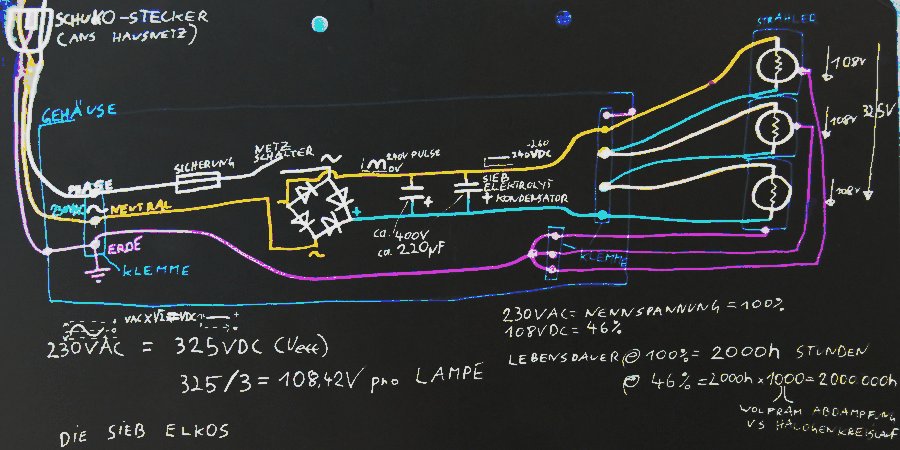 SCHUKO-STECKER
(ANS HAUSNETZ)
STRAHLER
108V
325V
GEHÄUSE
108V
108V
NETZ
SCHALTER
SICHERUNG
~
240V PULSE
0V
~260
240VDC
SIEB
ELEKTROLYT
+ KONDENSATOR
PHASE
230VAC ~
NEUTRAL
+
+
ca. 400V
ca. 220µF
~
ERDE
KLEMME
KLEMME
VAC X √2 = VDC
230VAC = 325VDC (Veff)
325/3 = 108,42V pro LAMPE
DIE SIEB ELKOS
230VAC = NENNSPANNUNG = 100%
108VDC = 46%
LEBENSDAUER @ 100% = 2000h STUNDEN
@ 46% = 2000h x 1000 = 2000.000h
WOLFRAM ABDAMPFUNG
VS HALOGENKREISLAUF